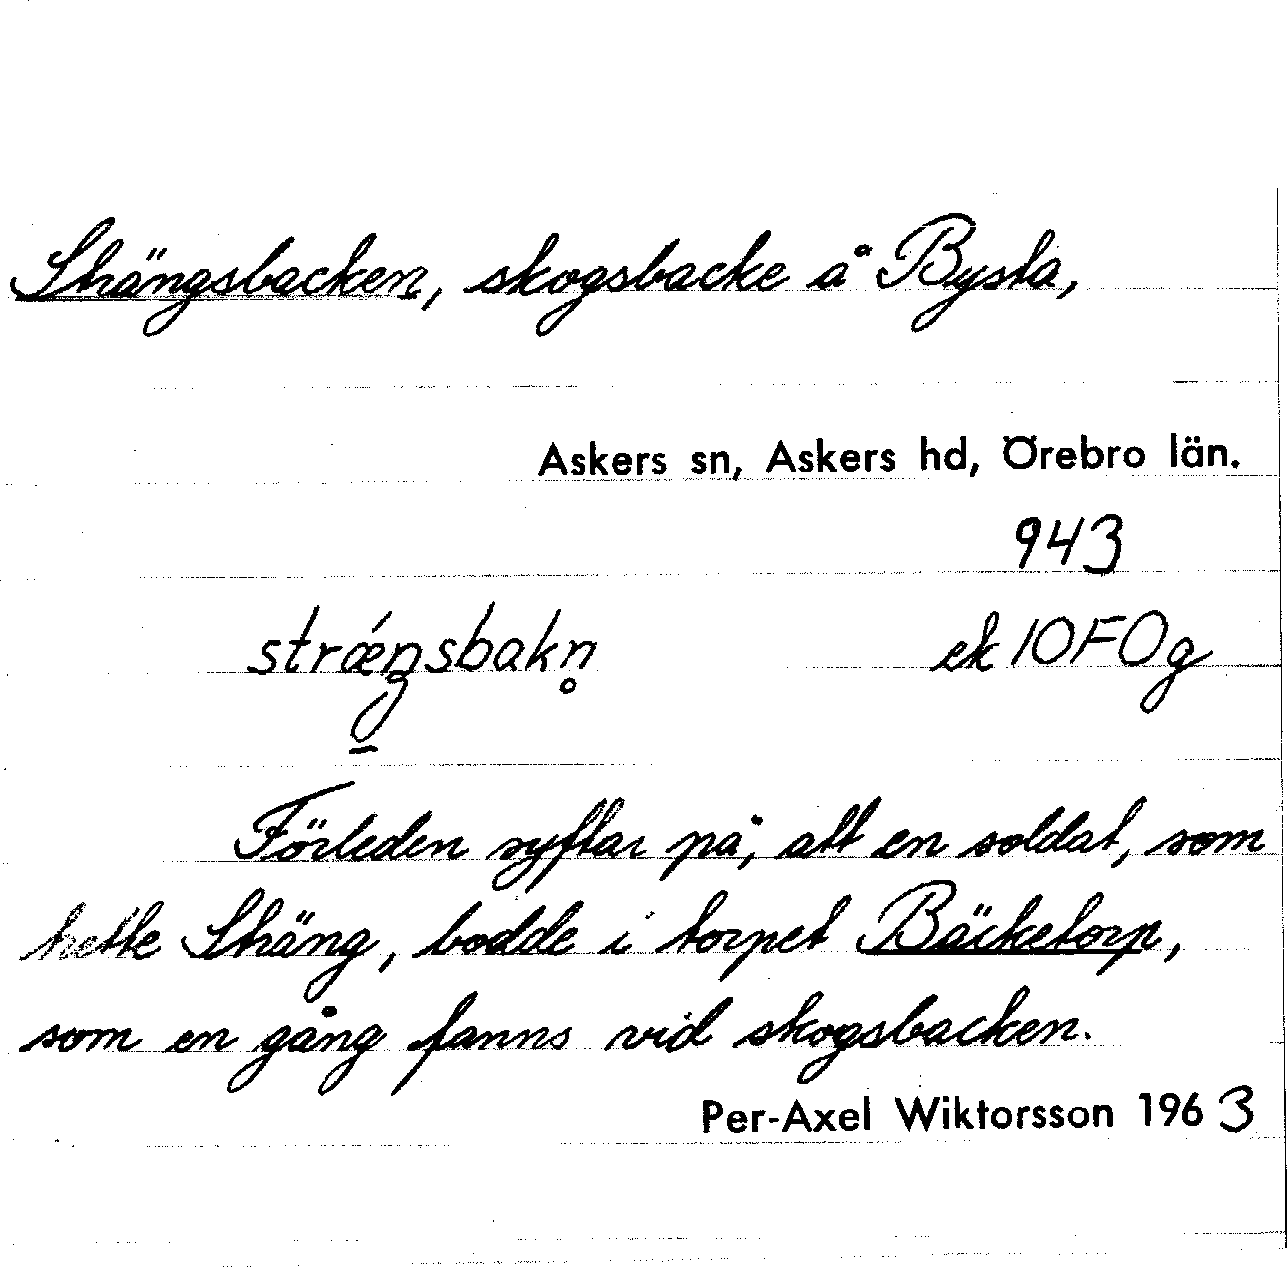 Strängsbacken, skogsbacke å Bysta,
Askers sn, Askers hd, Örebro län.
943
strǽŋsbakn̥ ek 10F0g
Förleden syftar på, att en soldat, som
hette Sträng, bodde i torpet Bäcketorp,
som en gång fanns vid skogsbacken.
Per-Axel Wiktorsson 1963